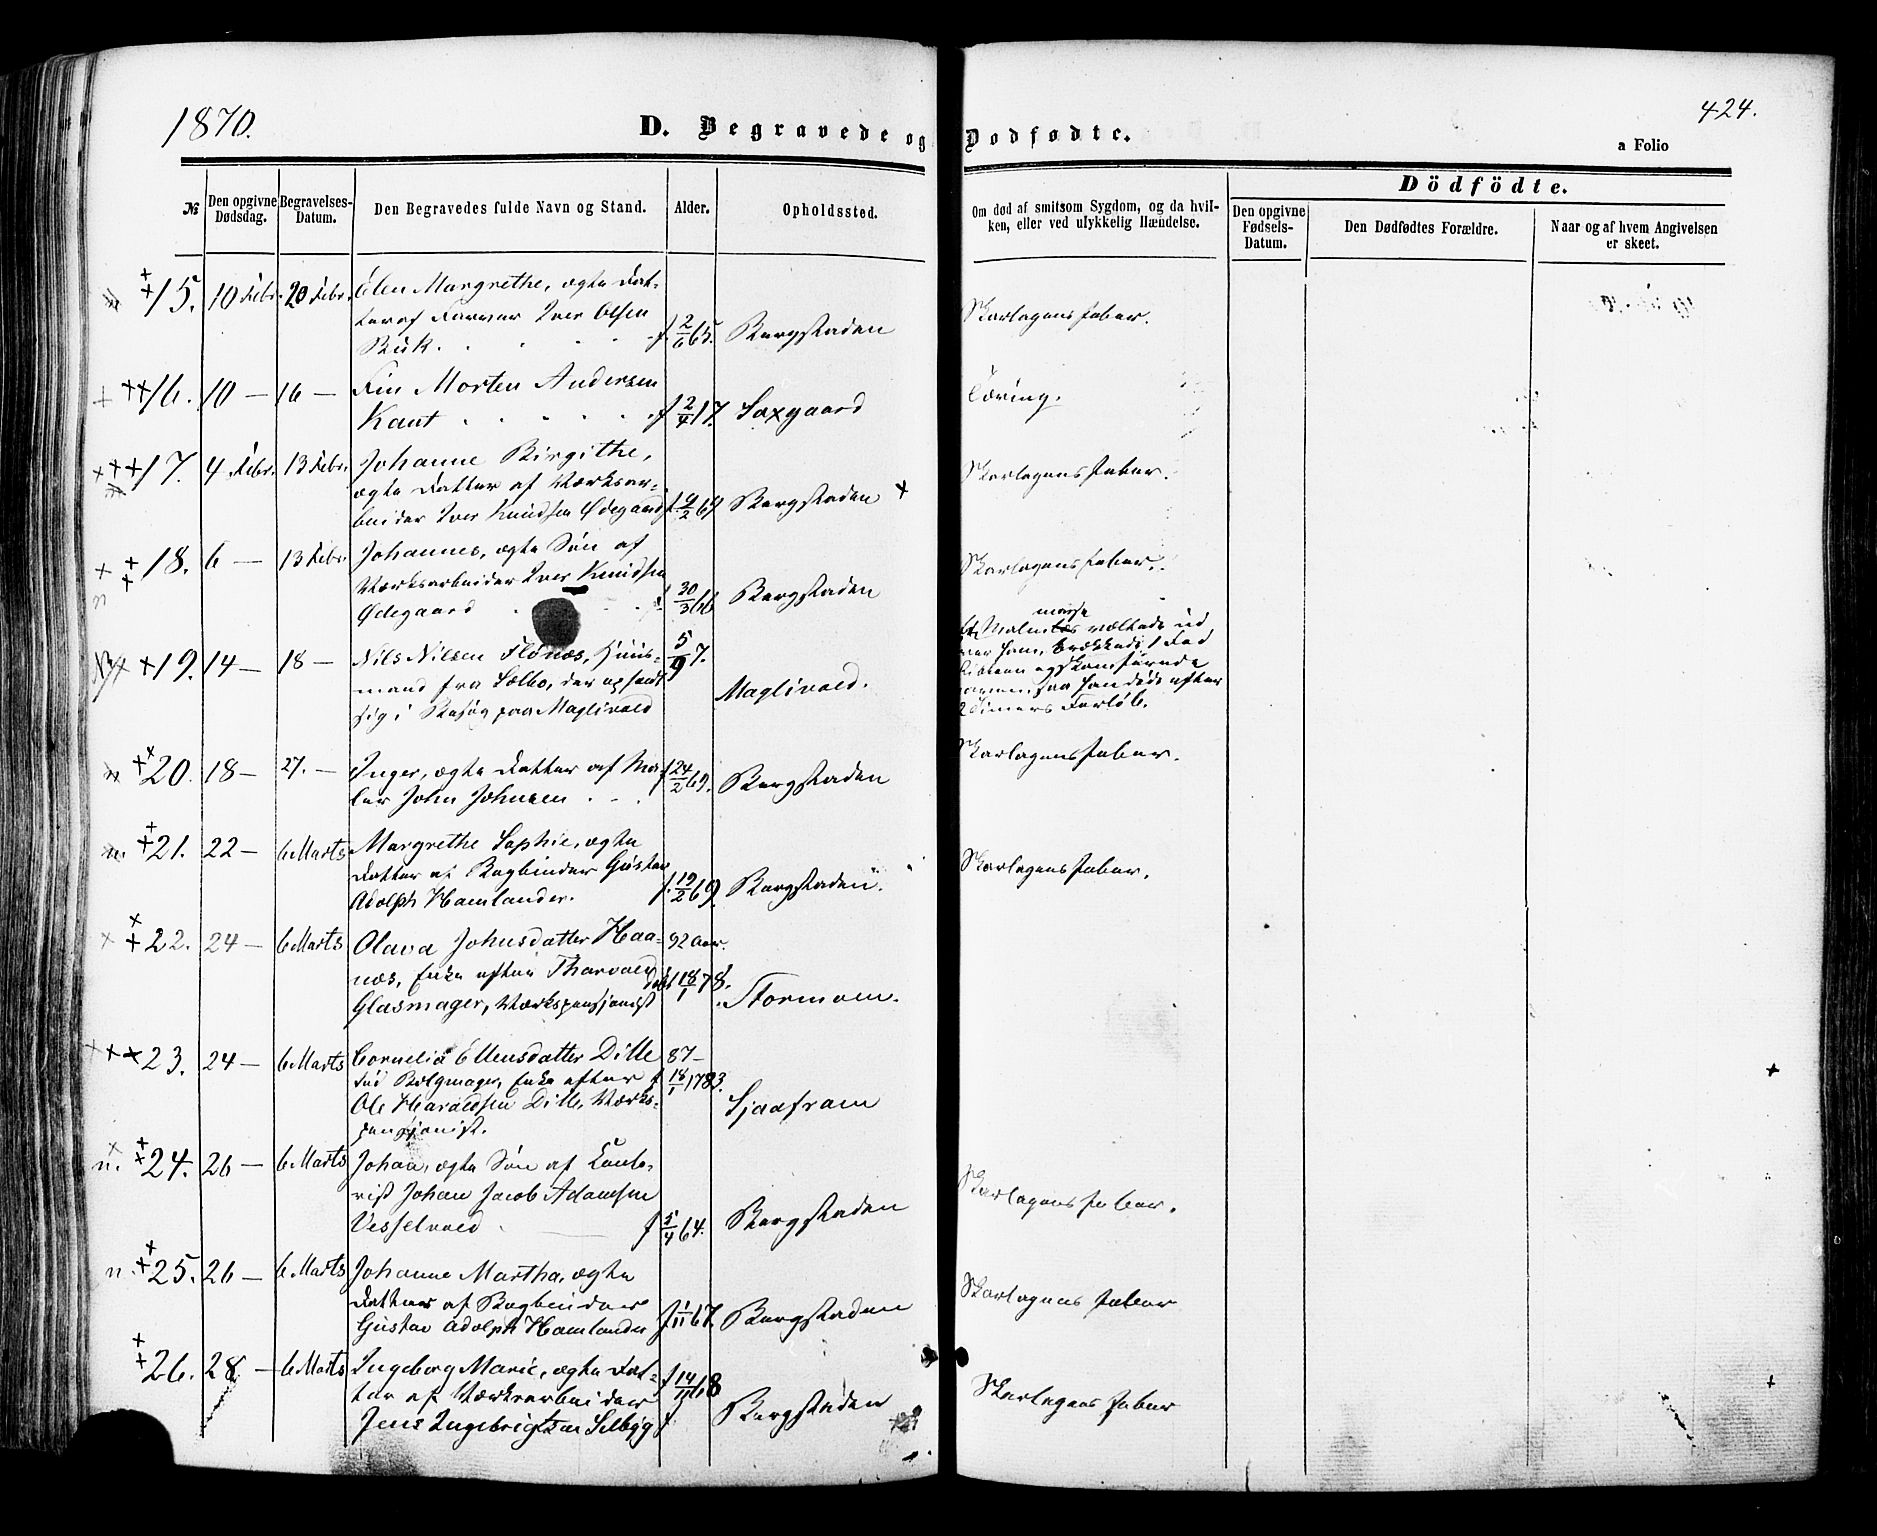 1870.
D. Begravede og Dodfødte.
424.
a Folio
№
Den opgivne Dødsdag.
Begravelses-Datum.
Den Begravedes fulde Navn og Stand.
Alder.
Opholdssted.
Om død af smitsom Sygdom, og da hvil-
ken, eller ved ulykkelig Hændelse.
Dödfödte.
Den opgivne Fødsels-Datum.
Den Dødfødtes Forældre.
Naar og af hvem Angivelsen er skeet.
15. 10 Febr. 20 Febr. Elen Margrethe, ægte Dat-
ter af Farver Iver Olsen
Buk. f. 2/6 65. Bergstaden Skarlagensfeber.
16. 10 — 16 — Fin Morten Andersen
Kant f 2/4 17. Saxgaard Tæring.
17. 4 Febr. 13 Febr. Johanne Birgithe,
ægte Datter af Værksar-
beider Iver Knudsen Ødegaard Bergstaden Skarlagensfeber.
18. 6 — 13 Febr. Johannes, ægte Søn af
Værksarbeider Iver Knudsen
Ødegaard f. 30/3 66 Bergstaden Skarlagensfeber.
19. 14 — 18 — Nils Nilsen Flønæs, Huus- 5/9 7.
mand fra Sælbo, der opholdt
sig i Besøg paa Maglivold Maglivold.
Et Malmlæs væltede ud
over ham, brækkede 1 Fod
saa han døde efter
2 Timers Forløb.
20. 18 — 27. — Inger, ægte Datter af Ma-
ler John Johnsen f 24/2 69. Bergstaden Skarlagensfeber.
21. 22 — 6 Marts Margrethe Sophie, ægte
Datter af Bogbinder Gustav
Adolph Hamlander. f. 19/2 69. Bergstaden. Skarlagensfeber.
22. 24 — 6 Marts Olava Johnsdatter Haa- 92 Aar.
næs, Enke efter Thorvald 18/1 78.
Glasmager, Værkspensjonist Stormoen.
23. 24 — 6 Marts Cornelia Ellensdatter Dille 87 —
fød Bælgmager, Enke efter f 18/1 1783.
Ole Haraldsen Dille, Værks-
pensjonist. Sjaafram
24. 26 — 6 Marts Johan, ægte Søn af Conto-
rist Johan Jacob Adamsen
Vesselvold f 5/4 64. Bergstaden Skarlagensfeber.
25. 26 — 6 Marts Johanne Martha, ægte
Datter af Bogbinder
Gustav Adolph Hamlander f 1/11 67. Bergstaden Skarlagensfeber
26. 28 — 6 Marts Ingeborg Marie, ægte Dat-
ter af Værksarbeider f 14/11 68
Jens Ingebrigtsen Selbyg Bergstaden Skarlagensfeber